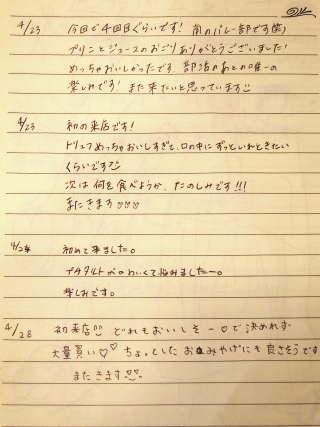 4/23 今回で4回目ぐらいです! 南のバレー部です(笑)
プリンとジュースのおごりありがとうございました!
めっちゃおいしかったです 部活のあとの唯一の
楽しみです! また来たいと思っています
4/23 初の来店です!
トリュフめっちゃおいしすぎて、口の中にずっといれときたい
くらいです
次は何を食べようか、たのしみです!!!
またきます
初めて来ました。
プチタルトがかわいくて悩みました〜。
楽しみです。
4/28 初来店 どれもおいしそー♡で決めれず
大量買い♡♡ ちょっとしたおみやげにも良さそうです
またきます